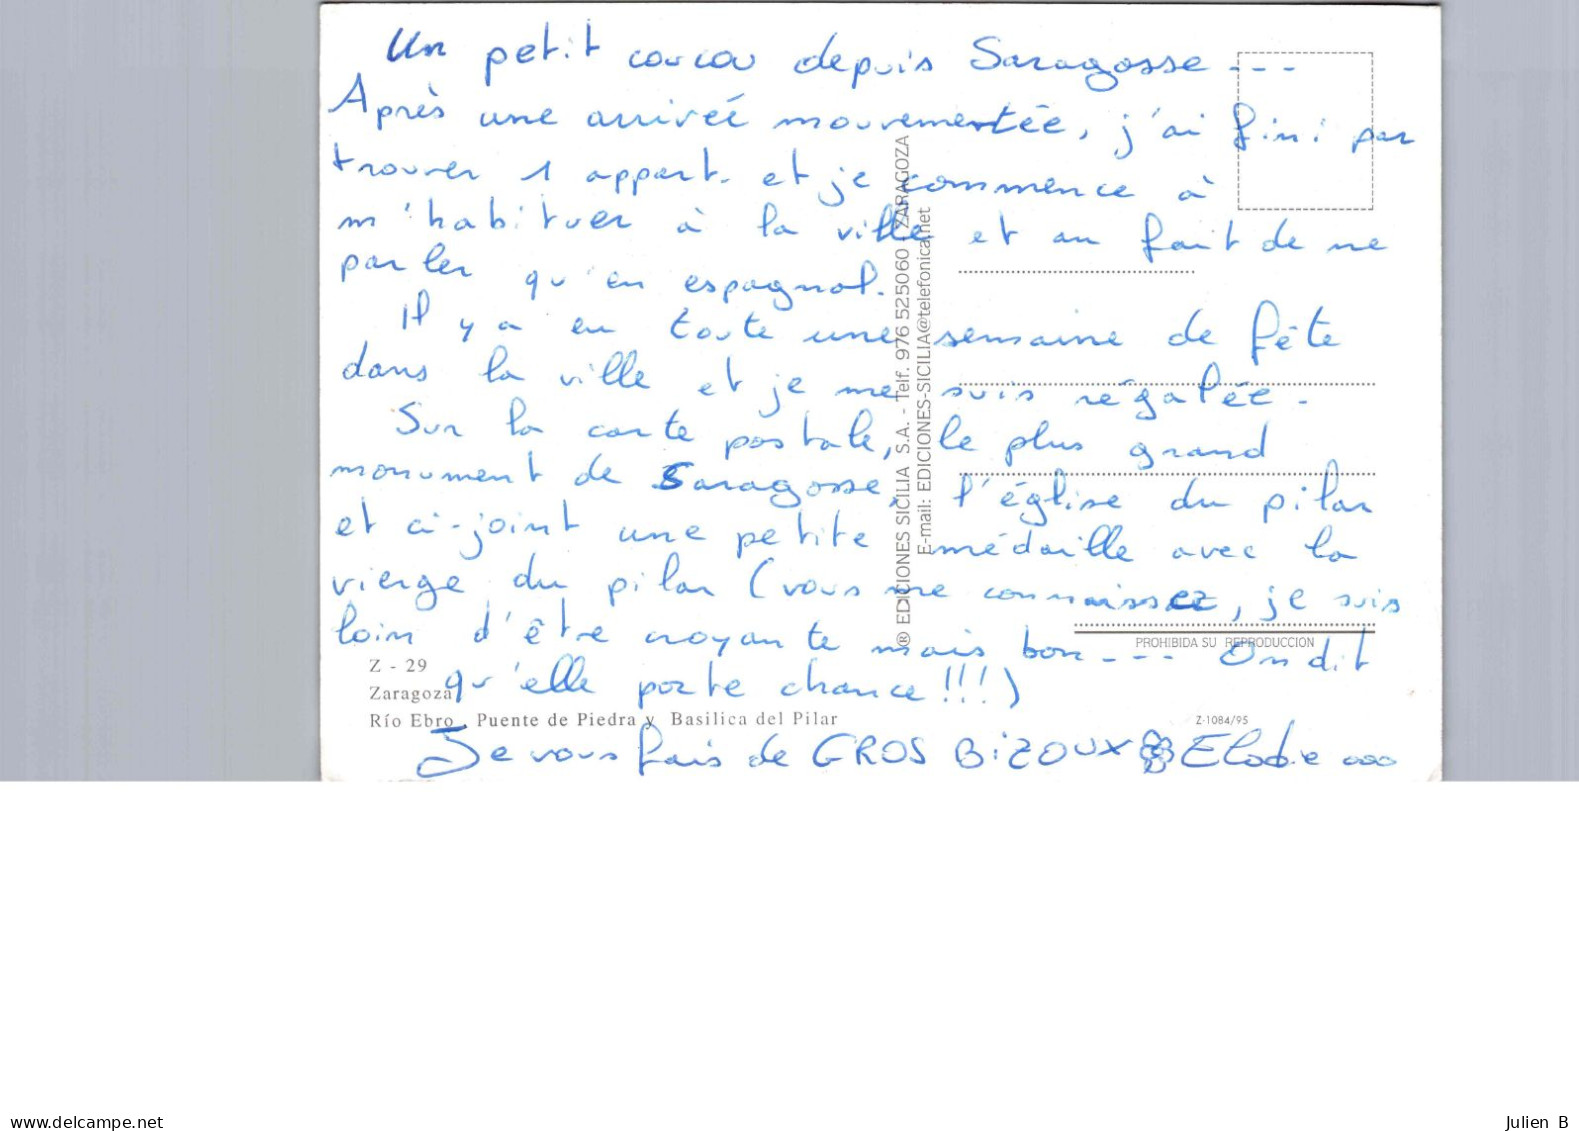 Un petit coucou depuis Saragosse ---
Après une arrivéé mouvementée, j'ai fini par
trouver 1 appart. et je commence à
m'habituer à la ville et au fait de ne
parler qu'en espagnol.
Il y a eu toute une semaine de fête
dans la ville et je me suis régalée.
Sur la carte postale, le plus grand
monument de Saragosse, l'église du pilar
et ci-joint une petite médaille avec la
vierge du pilar (vous me connaissez, je suis
loin d'être croyante mais bon --- On dit
qu'elle porte chance !!!)
Je vous fais de GROS BiZOUX Elodie ooo
Z - 29
Zaragoza
Río Ebro, Puente de Piedra y Basilica del Pilar
® EDICIONES SICILIA S.A. - Telf. 976 525060 ZARAGOZA
E-mail: EDICIONES-SICILIA@telefonica.net
PROHIBIDA SU REPRODUCCION
Z-1084/95
www.delcampe.net
Julien B